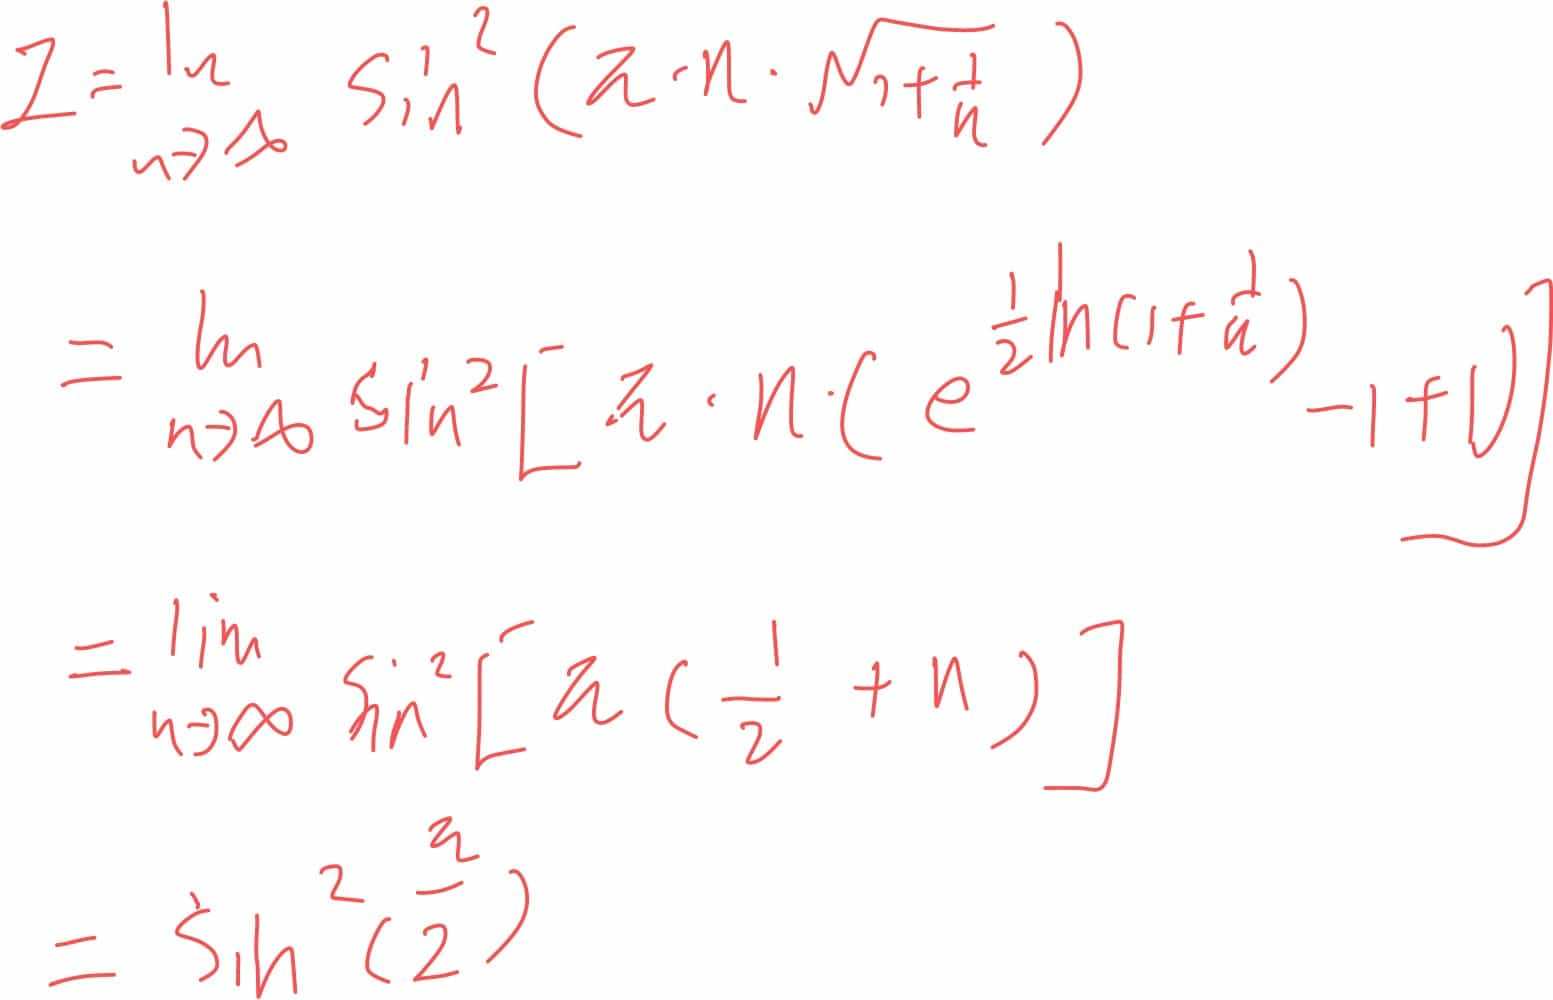 I = lim n→∞ sin²(π·n·√(1+1/n))
= lim n→∞ sin²[π·n·(e^(1/2 ln(1+1/n)) -1+1)]
= lim n→∞ sin²[π(1/2+n)]
= sin²(π/2)